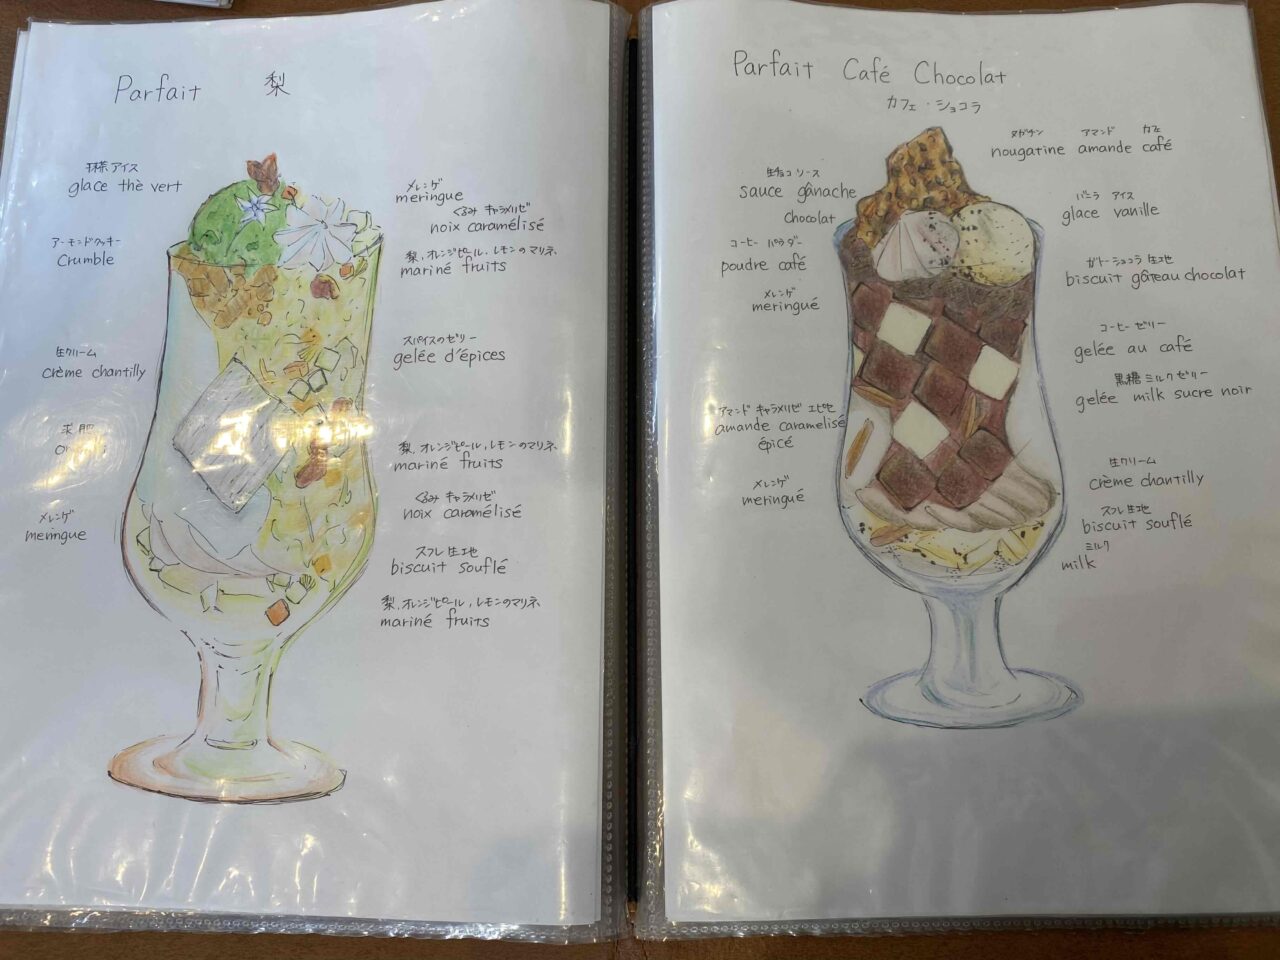 Parfait 梨
抹茶アイス
glace thè vert
アーモンドクッキー
Crumble
生クリーム
crème chantilly
求肥
メレンゲ
meringue
メレンゲ
meringue
くるみ キャラメリゼ
noix caramélisé
梨、オレンジピール、レモンのマリネ
mariné fruits
スパイスのゼリー
gelée d'épices
梨、オレンジピール、レモンのマリネ
mariné fruits
くるみ キャラメリゼ
noix caramélisé
スフレ生地
biscuit souflé
梨、オレンジピール、レモンのマリネ
mariné fruits
Parfait Café Chocolat
カフェ・ショコラ
生チョコ ソース
sauce gânache
chocolat
コーヒー パウダー
poudre café
メレンゲ
meringué
アマンド キャラメリゼ エピセ
amande caramelisé
épicé
メレンゲ
meringué
ヌガチン アマンド カフェ
nougatine amande café
バニラ アイス
glace vanille
ガトーショコラ 生地
biscuit gâteau chocolat
コーヒー ゼリー
gelée au café
黒糖ミルクゼリー
gelée milk sucre noir
生クリーム
crème chantilly
スフレ生地
biscuit souflé
ミルク
milk